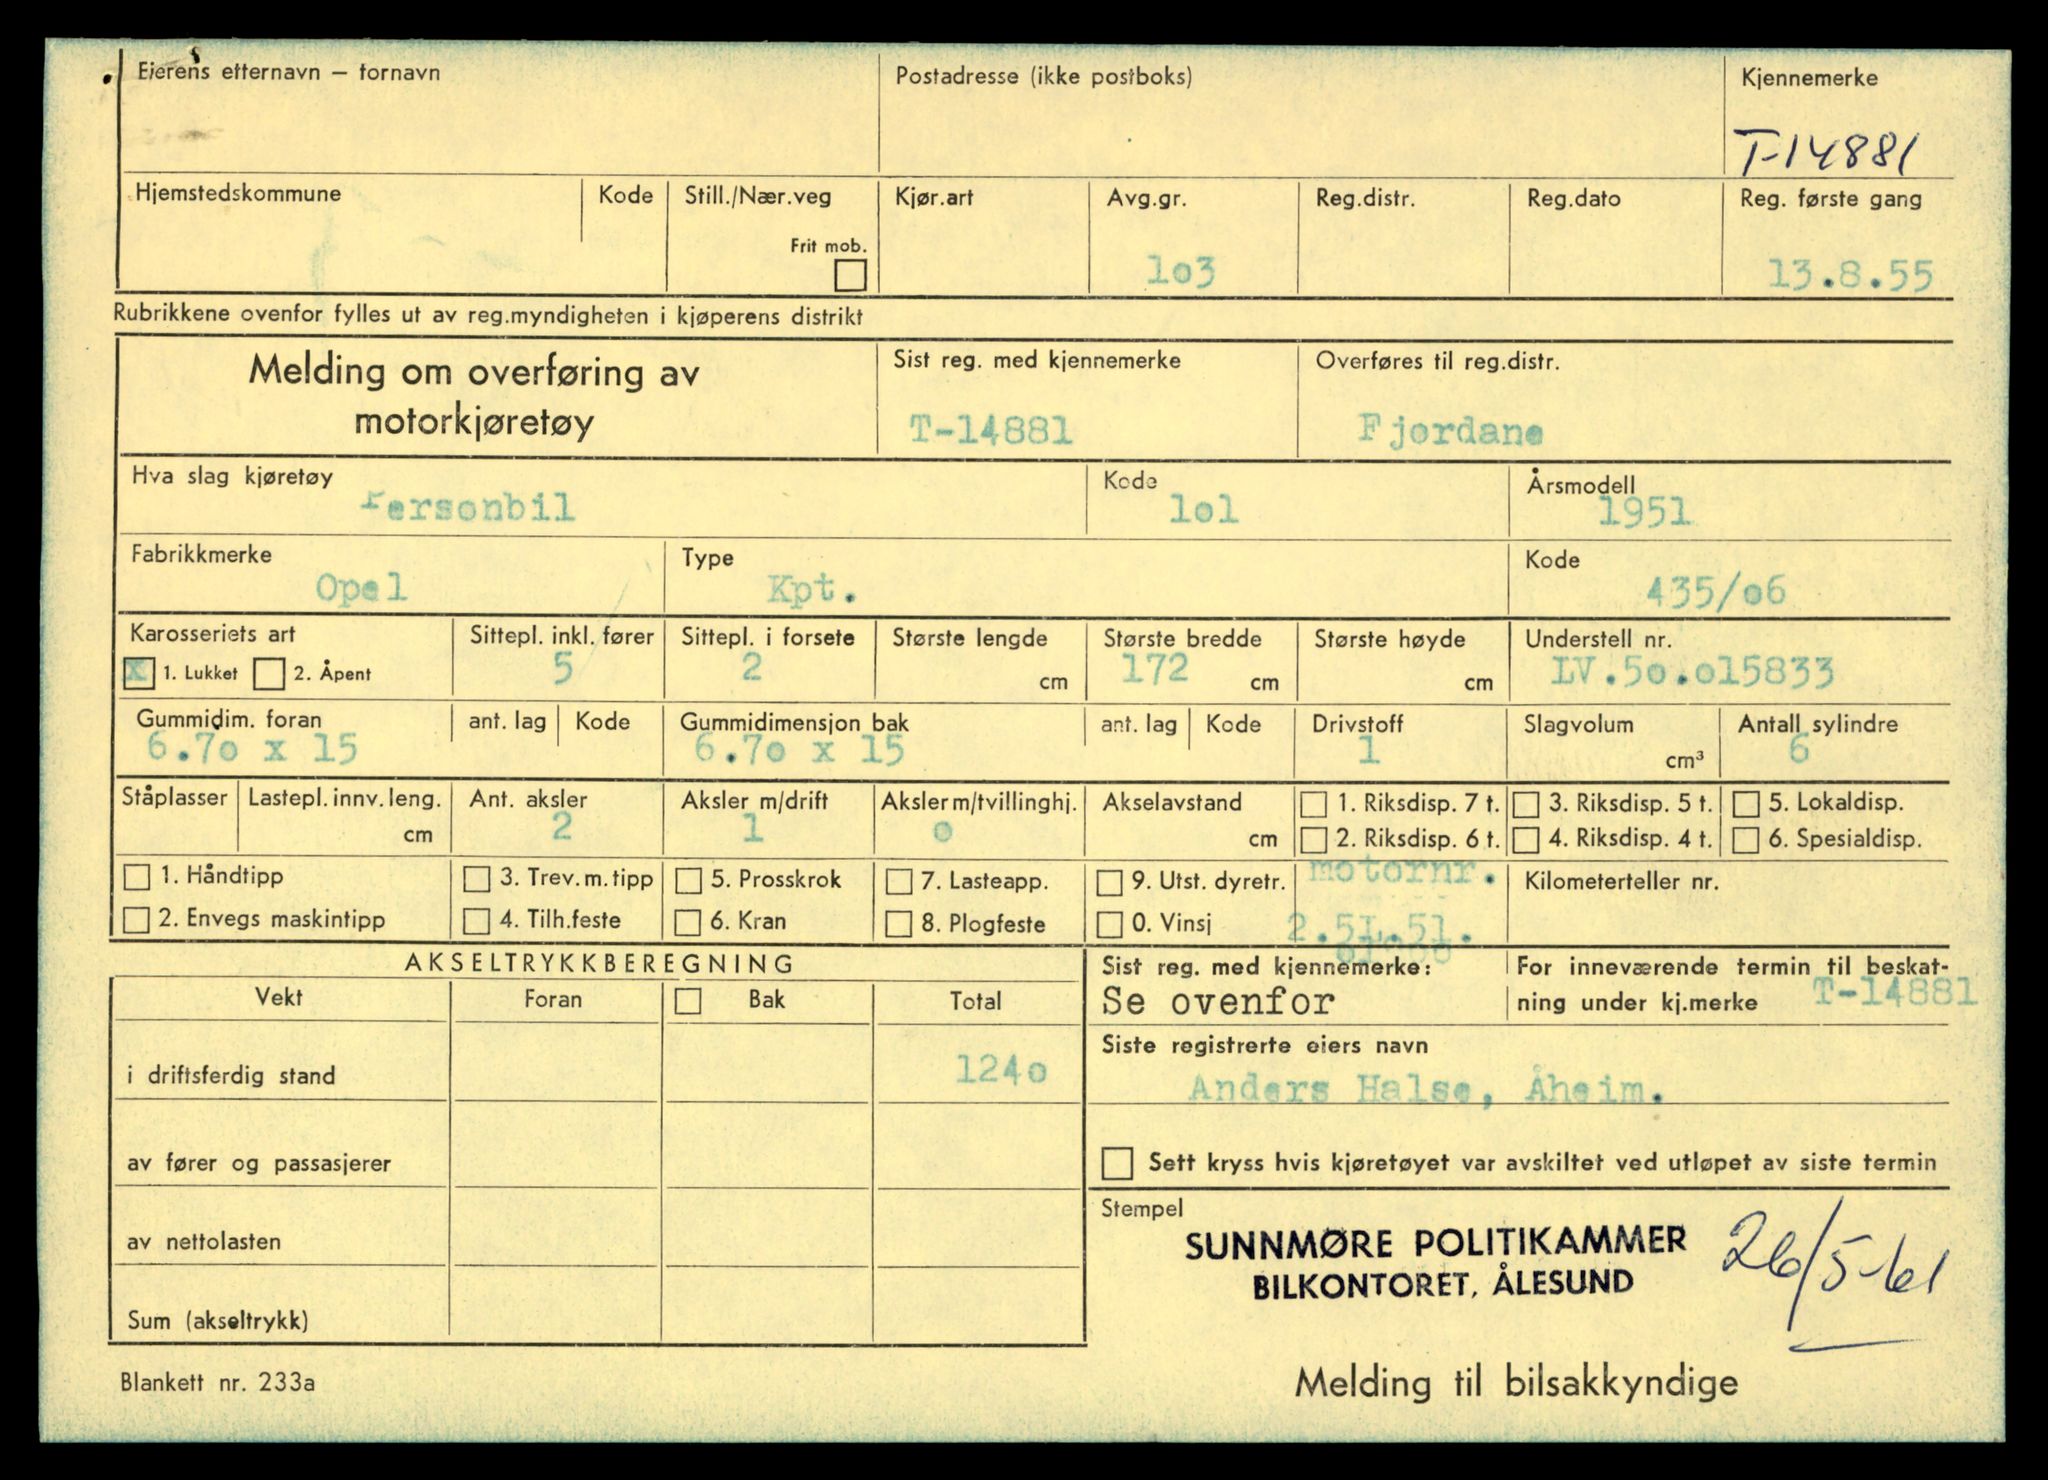 Eierens etternavn – fornavn
Postadresse (ikke postboks)
Kjennemerke
T-14881
Hjemstedskommune
Kode
Still./Nær.veg
Frit mob.
Kjør.art
Avg.gr.
1o3
Reg.distr.
Reg.dato
Reg. første gang
13.8.55
Rubrikkene ovenfor fylles ut av reg.myndigheten i kjøperens distrikt
Melding om overføring av
motorkjøretøy
Sist reg. med kjennemerke
T-14881
Overføres til reg.distr.
Fjordane
Hva slag kjøretøy
Personbil
Kode
1o1
Årsmodell
1951
Fabrikkmerke
Opel
Type
Kpt.
Kode
435/o6
Karosseriets art
x 1. Lukket 2. Åpent
Sittepl. inkl. fører
5
Sittepl. i forsete
2
Største lengde
cm
Største bredde
172 cm
Største høyde
cm
Understell nr.
LV.5o.o15833
Gummidim. foran
6.7o x 15
ant. lag
Kode
Gummidimensjon bak
6.7o x 15
ant. lag
Kode
Drivstoff
1
Slagvolum
cm³
Antall sylindre
6
Ståplasser
Lastepl. innv. leng.
cm
Ant. aksler
2
Aksler m/drift
1
Aksler m/tvillinghj.
o
Akselavstand
cm
1. Riksdisp. 7 t.
2. Riksdisp. 6 t.
3. Riksdisp. 5 t.
4. Riksdisp. 4 t.
5. Lokaldisp.
6. Spesialdisp.
1. Håndtipp
2. Envegs maskintipp
3. Trev. m. tipp
4. Tilh.feste
5. Prosskrok
6. Kran
7. Lasteapp.
8. Plogfeste
9. Utst. dyretr.
0. Vinsj
motornr.
2.5L.51.
Kilometerteller nr.
AKSELTRYKKBEREGNING
Vekt
Foran
Bak
Total
i driftsferdig stand
124o
av fører og passasjerer
av nettolasten
Sum (akseltrykk)
Sist reg. med kjennemerke:
Se ovenfor
For inneværende termin til beskat-
ning under kj.merke T-14881
Siste registrerte eiers navn
Anders Halse, Åheim.
Sett kryss hvis kjøretøyet var avskiltet ved utløpet av siste termin
Stempel
SUNNMØRE POLITIKAMMER
BILKONTORET, ÅLESUND
26/5-61
Blankett nr. 233a
Melding til bilsakkyndige